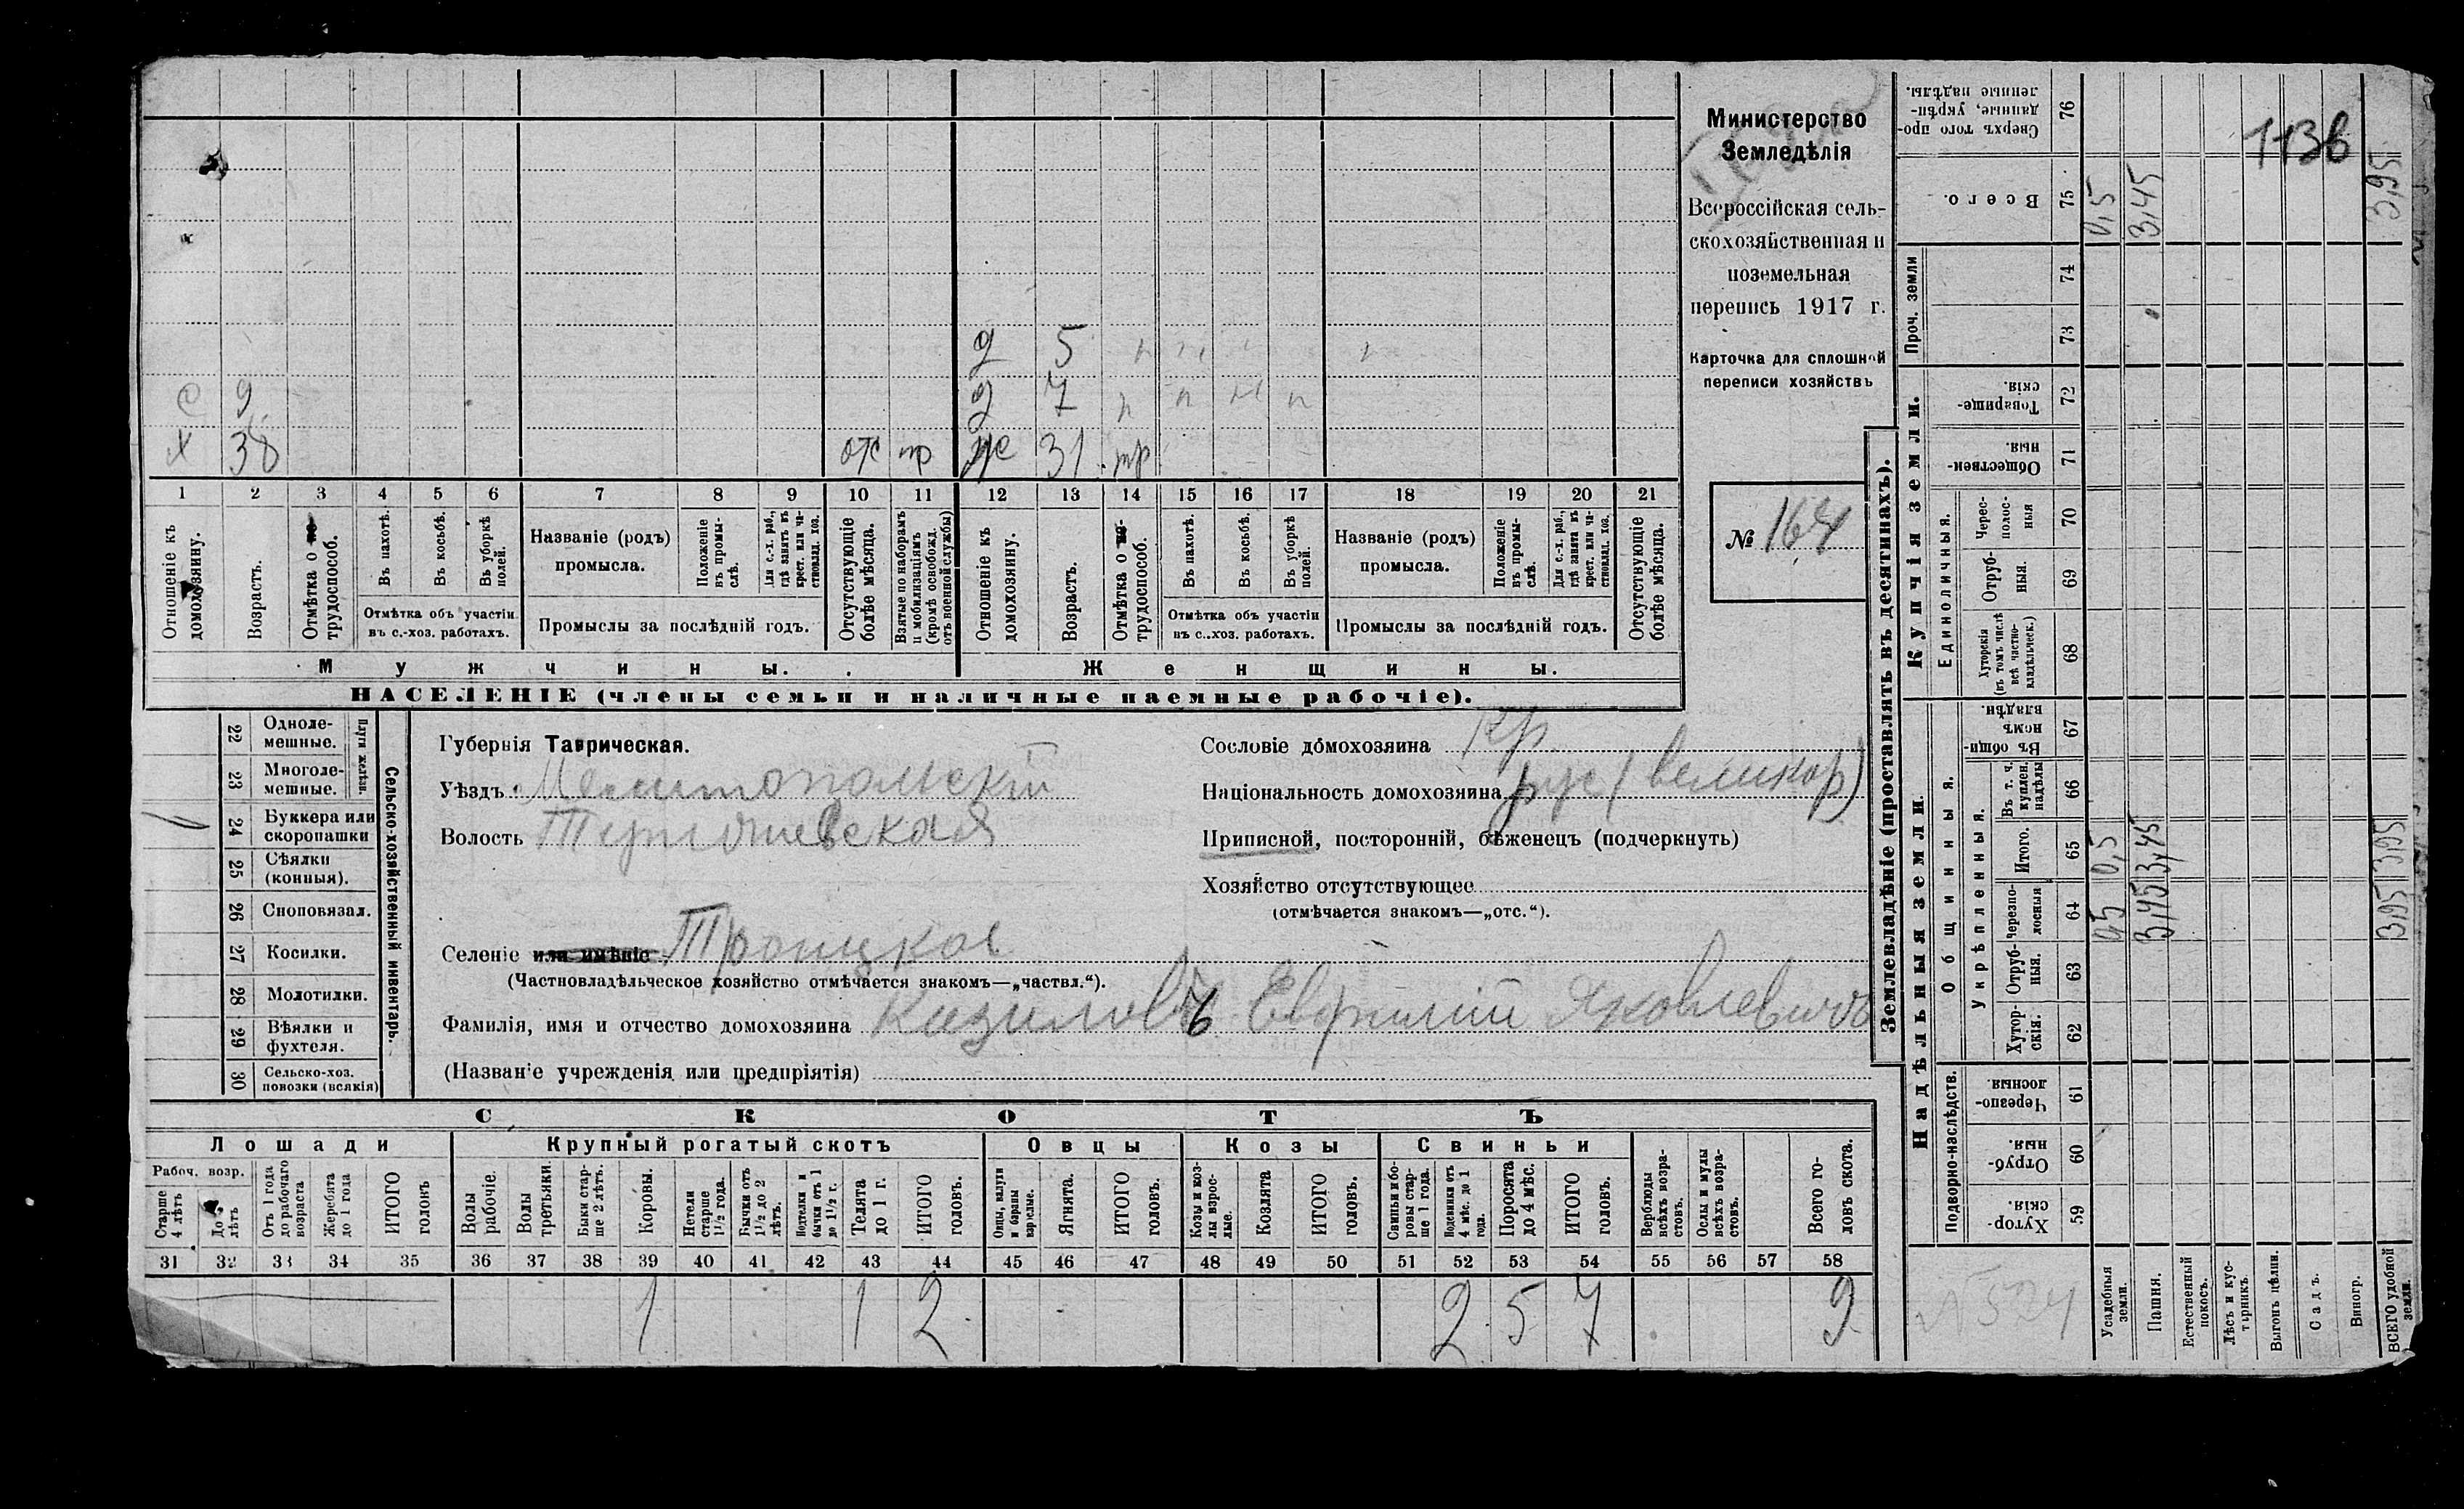 Министерство
Земледѣлія
Всероссійская сель-
скохозяйственная и
поземельная
перепись 1917 г.
Карточка для сплошной
переписи хозяйствъ
№ 164
1136
д 5
с 9 д 7
х 38 отс пр ж 31
1 2 3 4 5 6 7 8 9 10 11 12 13 14 15 16 17 18 19 20 21
Отношеніе къ домохозяину.
Возрастъ.
Отмѣтка о трудоспособ.
Въ пахотѣ.
Въ косьбѣ.
Въ уборкѣ полей.
Отмѣтка объ участіи
въ с.-хоз. работахъ.
Названіе (родъ)
промысла.
Положеніе въ промы-слѣ.
Для с.-х. раб., гдѣ занятъ въ крест. или ча-стновлад. хоз.
Промыслы за послѣдній годъ.
Отсутствующіе болѣе мѣсяца.
Взятые по наборамъ и мобилизаціямъ (кромѣ освобожд. отъ военной службы)
Отношеніе къ домохозяину.
Возрастъ.
Отмѣтка о трудоспособ.
Въ пахотѣ.
Въ косьбѣ.
Въ уборкѣ полей.
Отмѣтка объ участіи
въ с.-хоз. работахъ.
Названіе (родъ)
промысла.
Положеніе въ промы-слѣ.
Для с.-х. раб., гдѣ занята въ крест. или ча-стновлад. хоз.
Промыслы за послѣдній годъ.
Отсутствующіе болѣе мѣсяца.
Мужчины. Женщины.
НАСЕЛЕНІЕ (члены семьи и наличные наемные рабочіе).
Сельско-хозяйственный инвентарь.
Плуги желѣзн.
22 Одноле-мешные.
23 Многоле-мешные.
24 Буккера или скоропашки
25 Сѣялки (конныя).
26 Сноповязал.
27 Косилки.
28 Молотилки.
29 Вѣялки и фухтеля.
30 Сельско-хоз. повозки (всякія)
Губернія Таврическая.
Уѣздъ Мелитопольскій
Волость
Селеніе или имѣніе Троицкое
(Частновладѣльческое хозяйство отмѣчается знакомъ—„частвл.“).
Фамилія, имя и отчество домохозяина Кизиловъ Евфимій Яковлевичъ
(Названіе учрежденія или предпріятія)
Сословіе домохозяина кр
Національность домохозяина рус (великор)
Приписной, посторонній, бѣженецъ (подчеркнуть)
Хозяйство отсутствующее
(отмѣчается знакомъ—„отс.“).
СКОТЪ
Лошади Крупный рогатый скотъ Овцы Козы Свиньи
Рабоч. возр.
Старше 4 лѣтъ
До лѣтъ
Отъ 1 года до рабочаго возраста
Жеребята до 1 года
ИТОГО головъ
Волы рабочіе.
Волы третьяки.
Быки стар-ше 2 лѣтъ.
Коровы.
Нетели старше 1½ года.
Бычки отъ 1½ до 2 лѣтъ.
Нетелки и бычки отъ 1 до 1½ г.
Телята до 1 г.
ИТОГО головъ.
Овцы, валухи и бараны взрослые.
Ягнята.
ИТОГО головъ.
Козы и коз-лы взрос-лые.
Козлята
ИТОГО головъ.
Свиньи и бо-ровы стар-ше 1 года.
Подсвинки отъ 4 мѣс. до 1 года.
Поросята до 4 мѣс.
ИТОГО головъ.
Верблюды всѣхъ возра-стовъ.
Ослы и мулы всѣхъ возра-стовъ.
Всего го-ловъ скота.
31 32 33 34 35 36 37 38 39 40 41 42 43 44 45 46 47 48 49 50 51 52 53 54 55 56 57 58
1 1 2 2 5 7 9
Землевладѣніе (проставлять въ десятинахъ).
Надѣльныя земли.
Купчія земли.
Проч. земли
Подворно-наслѣдств.
Общинныя.
Укрѣпленныя.
Единоличныя.
59 Хутор-скія.
60 Отруб-ныя.
61 Черезпо-лосныя.
62 Хутор-скія.
63 Отруб-ныя.
64 Черезпо-лосныя
65 Итого.
66 Въ т. ч. куплен. надѣлы
67 Въ общи-номъ владѣн.
68 Хуторскія (въ томъ числѣ всѣ частно-владѣльческ.)
69 Отруб-ныя.
70 Черес-полос-ныя
71 Обществен-ныя
72 Товарище-скія.
73
74
75 Всего.
76 Сверхъ того про-данные, укрѣп-ленные надѣлы.
Усадебныя земли. 0,5 0,5 0,5
Пашня. 3,45 3,45 3,45
Естественный покосъ.
Лѣсъ и кус-тарникъ.
Выгонъ цѣлин.
Садъ.
Виногр.
ВСЕГО удобной земли. 3,95 3,95 3,95